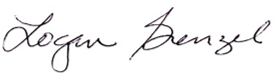 Logan Grenzel